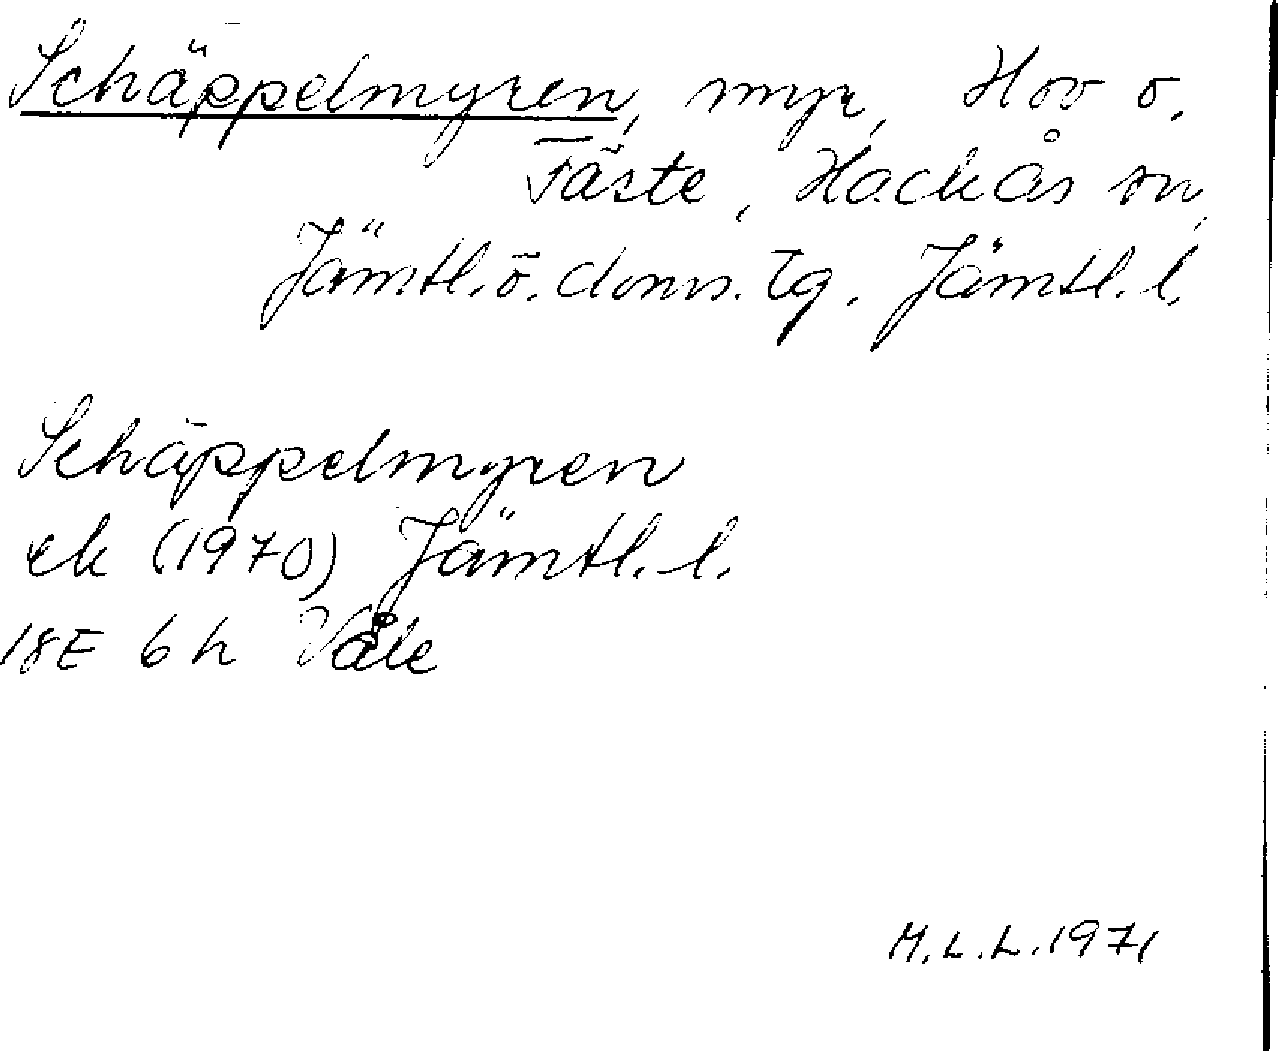 Schäppelmyren, myr, Hov o.
Fäste, Hackås sn,
Jämtl. ö. doms. tg. Jämtl. l.
Schäppelmyren
ek (1970) Jämtl. l.
18E 6h Våle
M.L.L. 1971